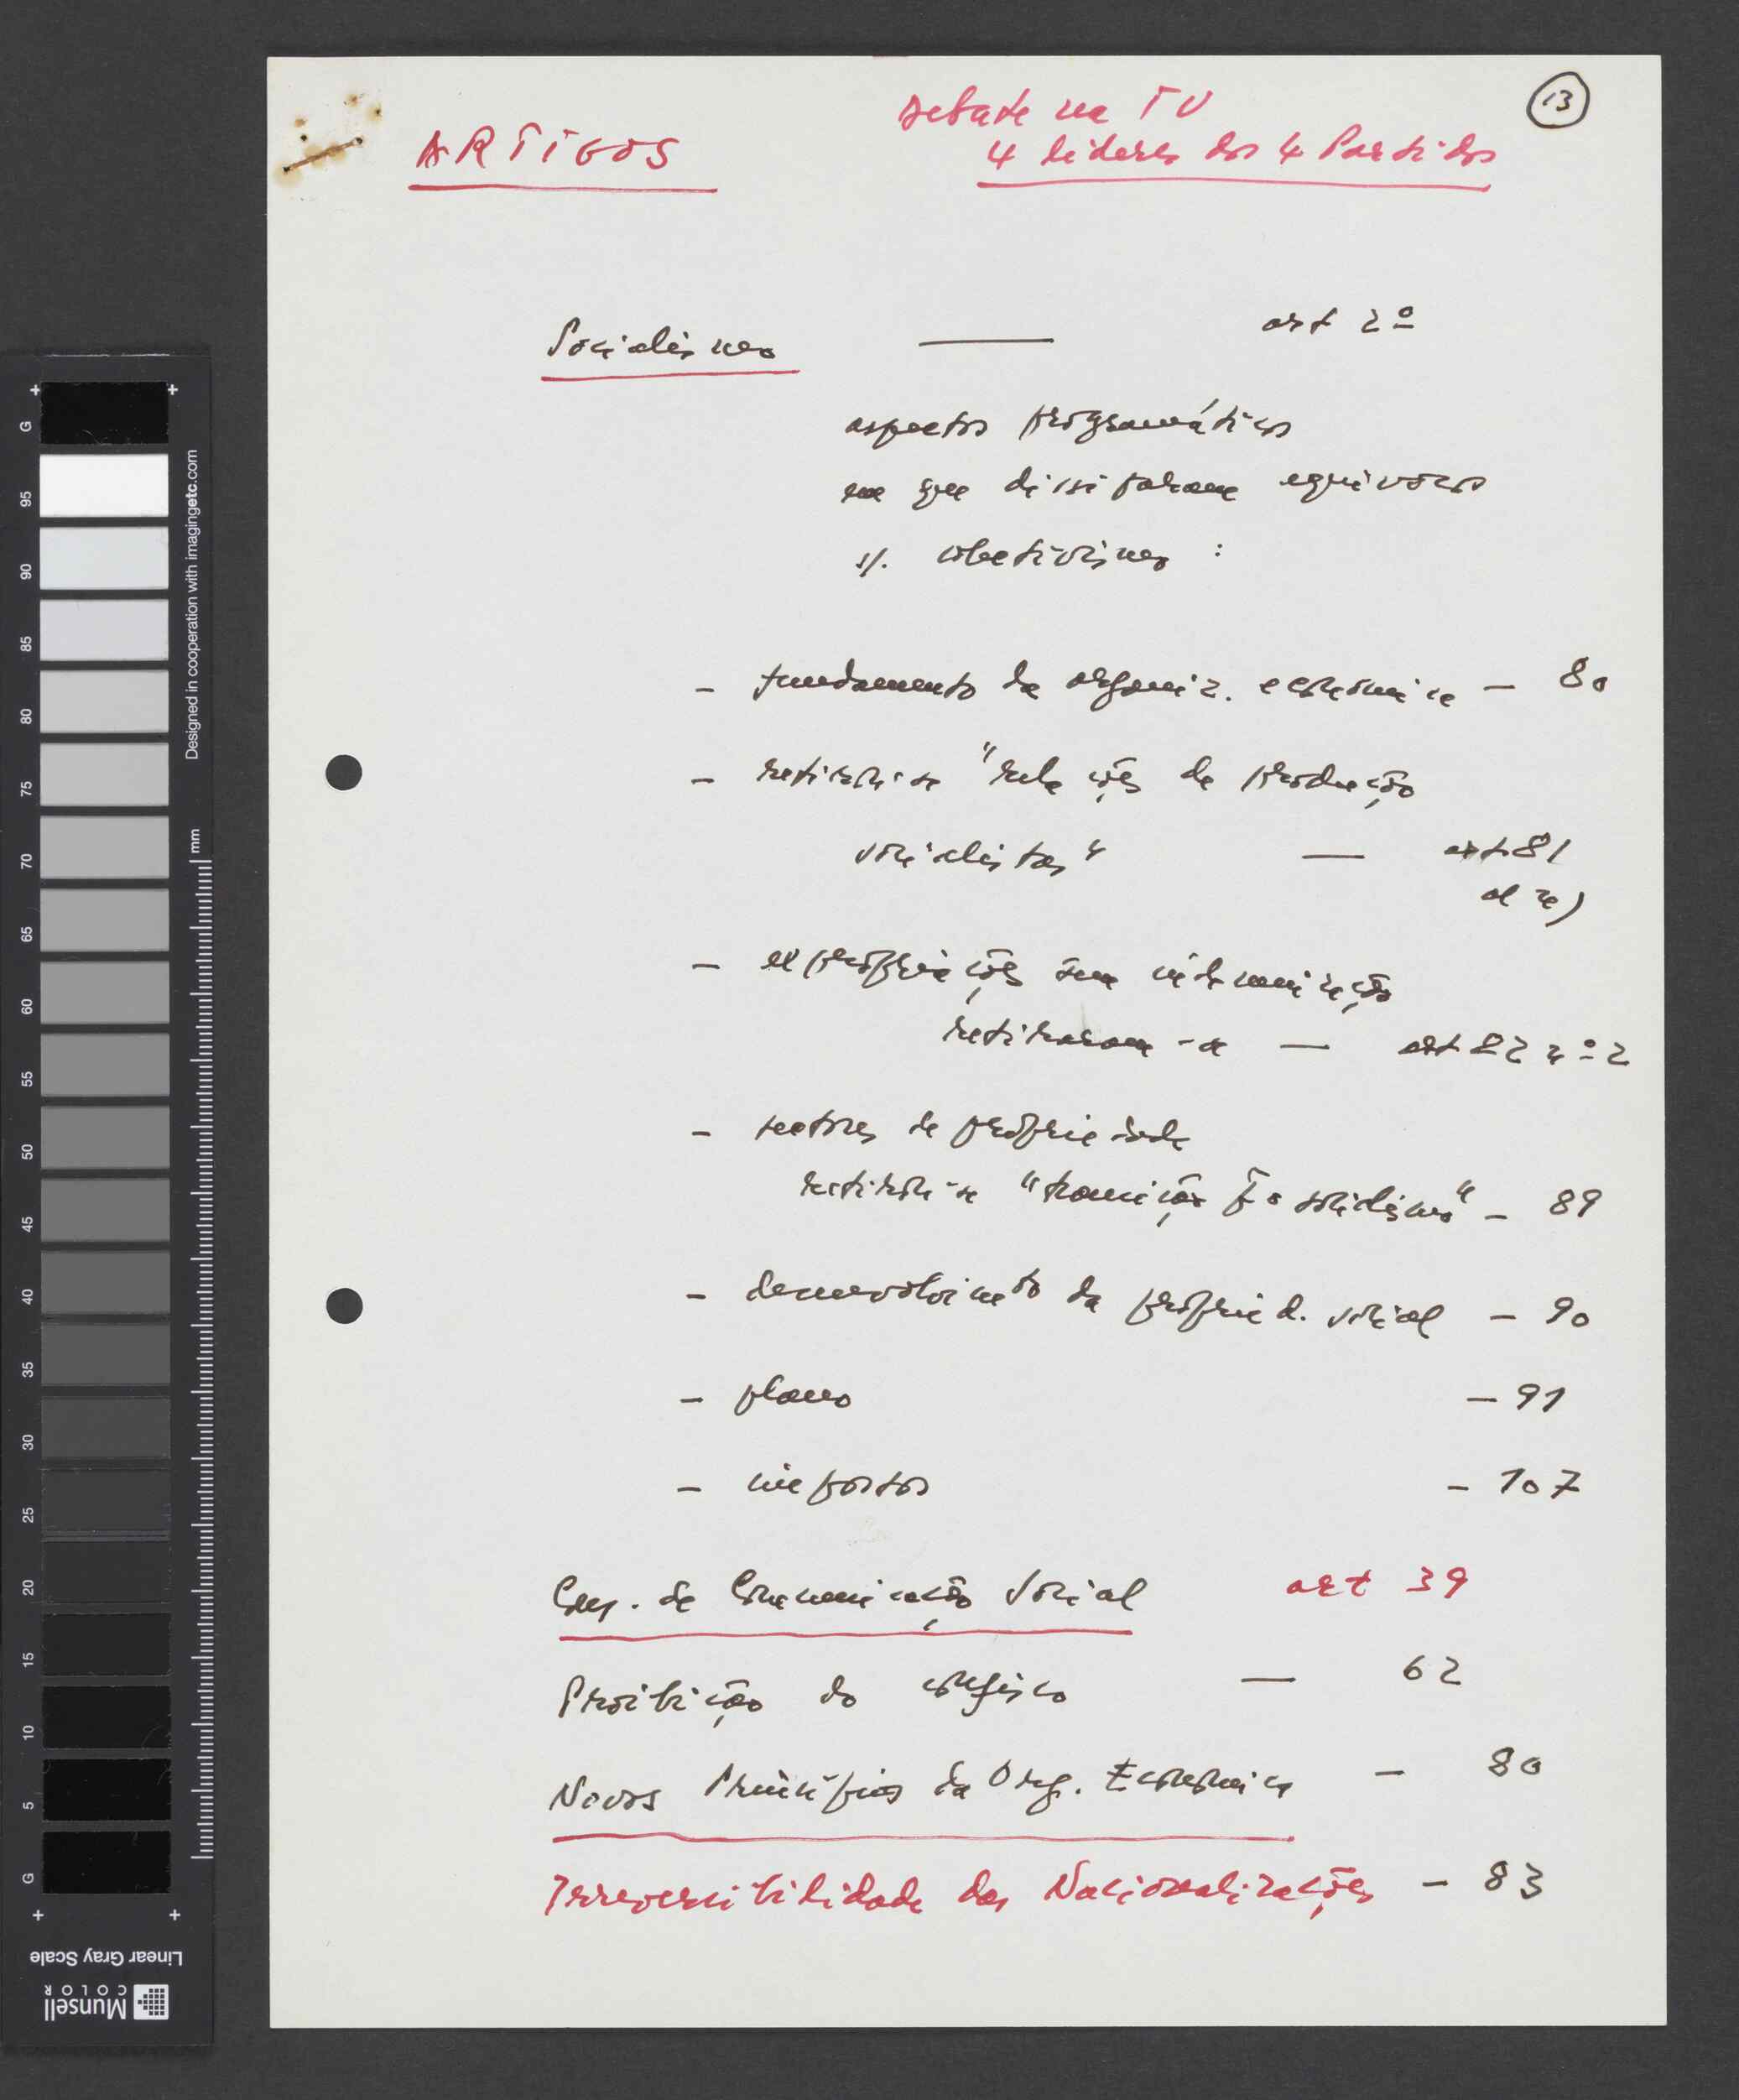 13
Debate na TV
ARTIGOS
4 lideres dos 4 Partidos
Socialismo — art 2º
aspectos programáticos
em que dissiparam equivocos
s/. coletivismo :
- fundamento da organiz. económica - 80
- retirou-se "relações de produção
socialistas" — art 81
al
- expropriações sem indemnização
retiraram-se — art 82 nº 2
- sectores de propriedade
retirou-se "transição pª o socialismo" - 89
- desenvolvimento da propried. social - 90
- plano - 91
- impostos - 107
Cons. de Comunicação Social art 39
Proibição do confisco — 62
Novos Princípios da Org. Económica - 80
Irreversibilidade das Nacionalizações - 83
G
95
90
85
80
75
70
65
60
55
50
45
40
35
30
25
20
15
10
5
G
mm
Designed in cooperation with imagingetc.com
Linear Gray Scale
Munsell
COLOR